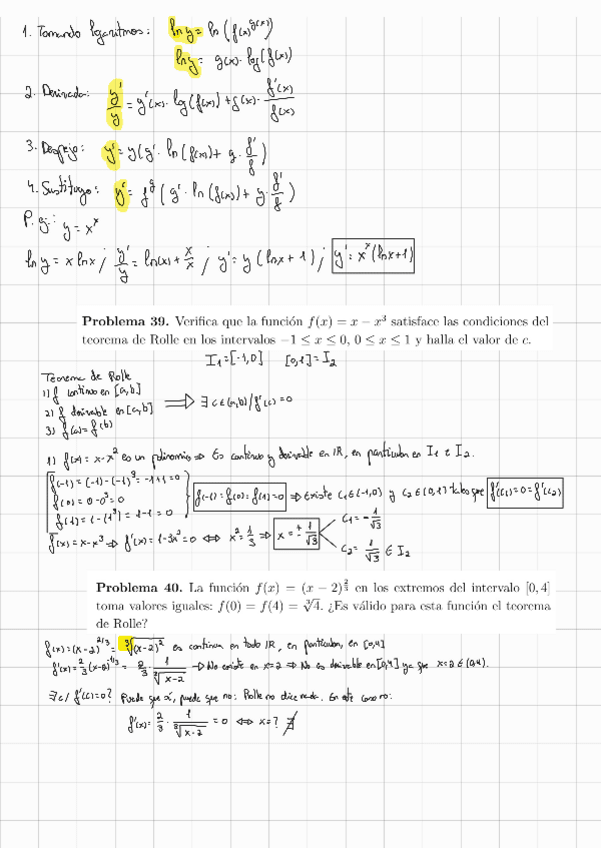 1. Tomando logaritmos: ln y = ln (f(x)^g(x))
ln y = g(x) · log(f(x))
2. Derivada: y'/y = g'(x) · log(f(x)) + g(x) · f'(x)/f(x)
3. Despejo: y' = y(g' · ln(f(x)) + g · f'/f)
4. Sustituyo: y' = f^g (g' · ln(f(x)) + g · f'/f)
P. ej.: y = x^x
ln y = x ln x ; y'/y = ln(x) + x/x ; y' = y (ln x + 1) ; y' = x^x (ln x + 1)
Problema 39. Verifica que la función f(x) = x − x³ satisface las condiciones del
teorema de Rolle en los intervalos −1 ≤ x ≤ 0, 0 ≤ x ≤ 1 y halla el valor de c.
I₁ = [-1,0] [0,1] = I₂
Teorema de Rolle
1) f continua en [a,b]
2) f derivable en [a,b] ⟹ ∃ c ∈ (a,b) / f'(c) = 0
3) f(a) = f(b)
1) f(x) = x - x² es un polinomio ⇒ Es continuo y derivable en IR, en particular en I₁ e I₂.
f(-1) = (-1) - (-1)³ = -1 + 1 = 0
f(0) = 0 - 0³ = 0 f(-1) = f(0) = f(1) = 0 ⇒ existe c₁ ∈ (-1,0) y c₂ ∈ (0,1) tales que f'(c₁) = 0 = f'(c₂)
f(1) = 1 - (1³) = 1 - 1 = 0
f(x) = x - x³ ⇒ f'(x) = 1 - 3x² = 0 ⇔ x² = 1/3 ⇒ x = ± 1/√3 c₁ = - 1/√3
c₂ = 1/√3 ∈ I₂
Problema 40. La función f(x) = (x − 2)^(2/3) en los extremos del intervalo [0, 4]
toma valores iguales: f(0) = f(4) = ∛4. ¿Es válido para esta función el teorema
de Rolle?
f(x) = (x-2)^2/3 = ∛(x-2)² es continua en todo IR, en particular, en [0,4]
f'(x) = 2/3 (x-2)^-1/3 = 2/3 · 1/∛(x-2) → No existe en x=2 ⇒ No es derivable en [0,4] ya que x=2 ∈ (0,4).
∃ c / f'(c) = 0? Puede que sí, puede que no: Rolle no dice nada. En este caso no:
f'(x) = 2/3 · 1/∛(x-2) = 0 ⇔ x = ? ∄